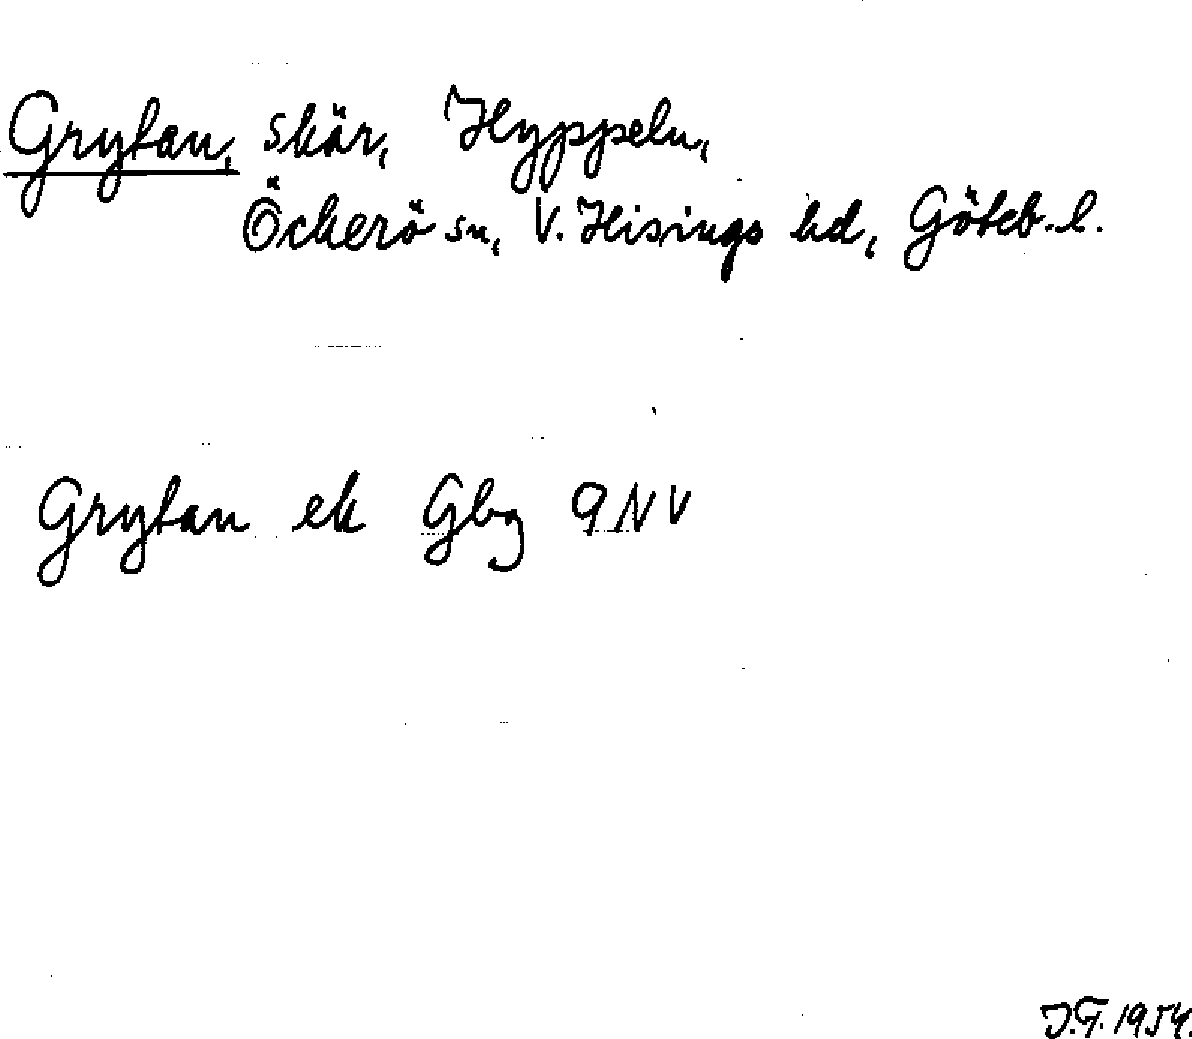 Grytan, skär, Hyppeln,
Öckerö sn, V. Hisings hd, Göteb. l.
Grytan ek Gbg 9 NV
J.G. 1954.